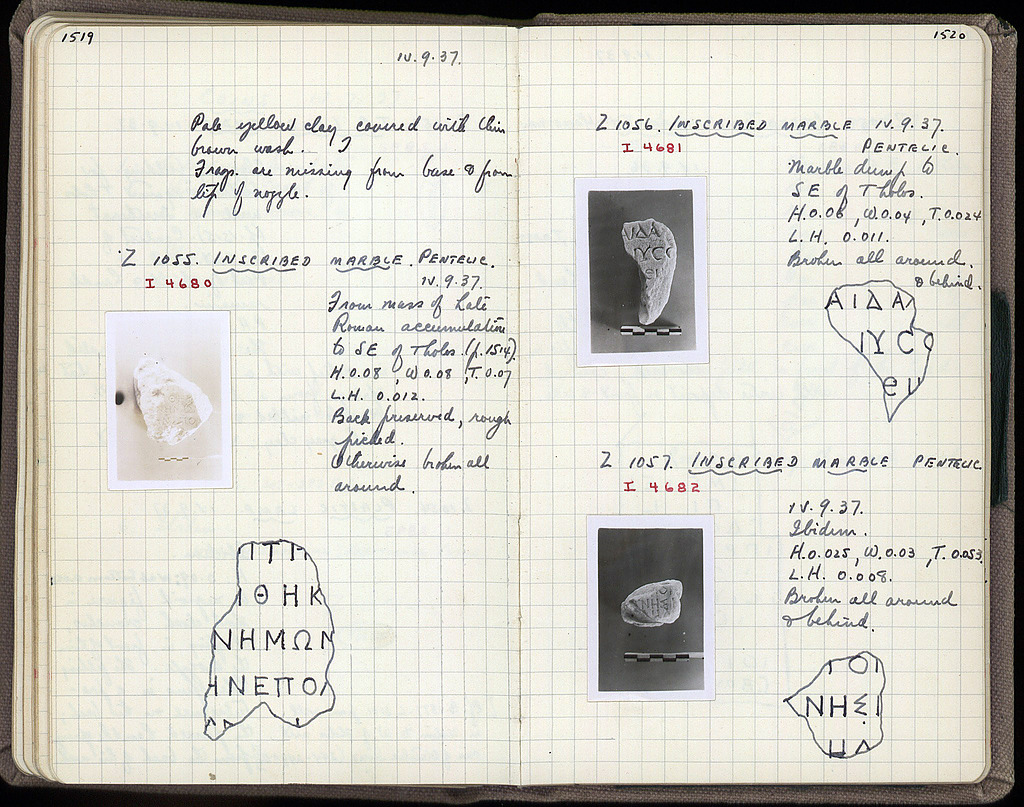 1519
IV.9.37.
Pale yellow clay covered with thin
brown wash.
Frags. are missing from base & from
lip of nozzle.
Z 1055. INSCRIBED MARBLE. PENTELIC.
I 4680
IV.9.37.
From mass of Late
Roman accumulation
to SE of Tholos. (p.1514)
H.0.08, W.0.08, T.0.07
L.H. 0.012.
Back preserved, rough
picked.
Otherwise broken all
around.
ΙΤΠ
ΙΘΗΚ
ΝΗΜΩΝ
ΗΝΕΠΟΛ
1520
Z 1056. INSCRIBED MARBLE IV.9.37.
I 4681
PENTELIC.
Marble dump to
SE of Tholos.
H.0.06, W.0.04, T.0.024
L.H. 0.011.
Broken all around.
& behind.
ΑΙΔΑ
ΙΥϹΟ
ΕΙ
Z 1057. INSCRIBED MARBLE PENTELIC
I 4682
IV.9.37.
Ibidem.
H.0.025, W.0.03, T.0.053
L.H. 0.008.
Broken all around
& behind.
ΙΟΙ
ΝΗΣΙ